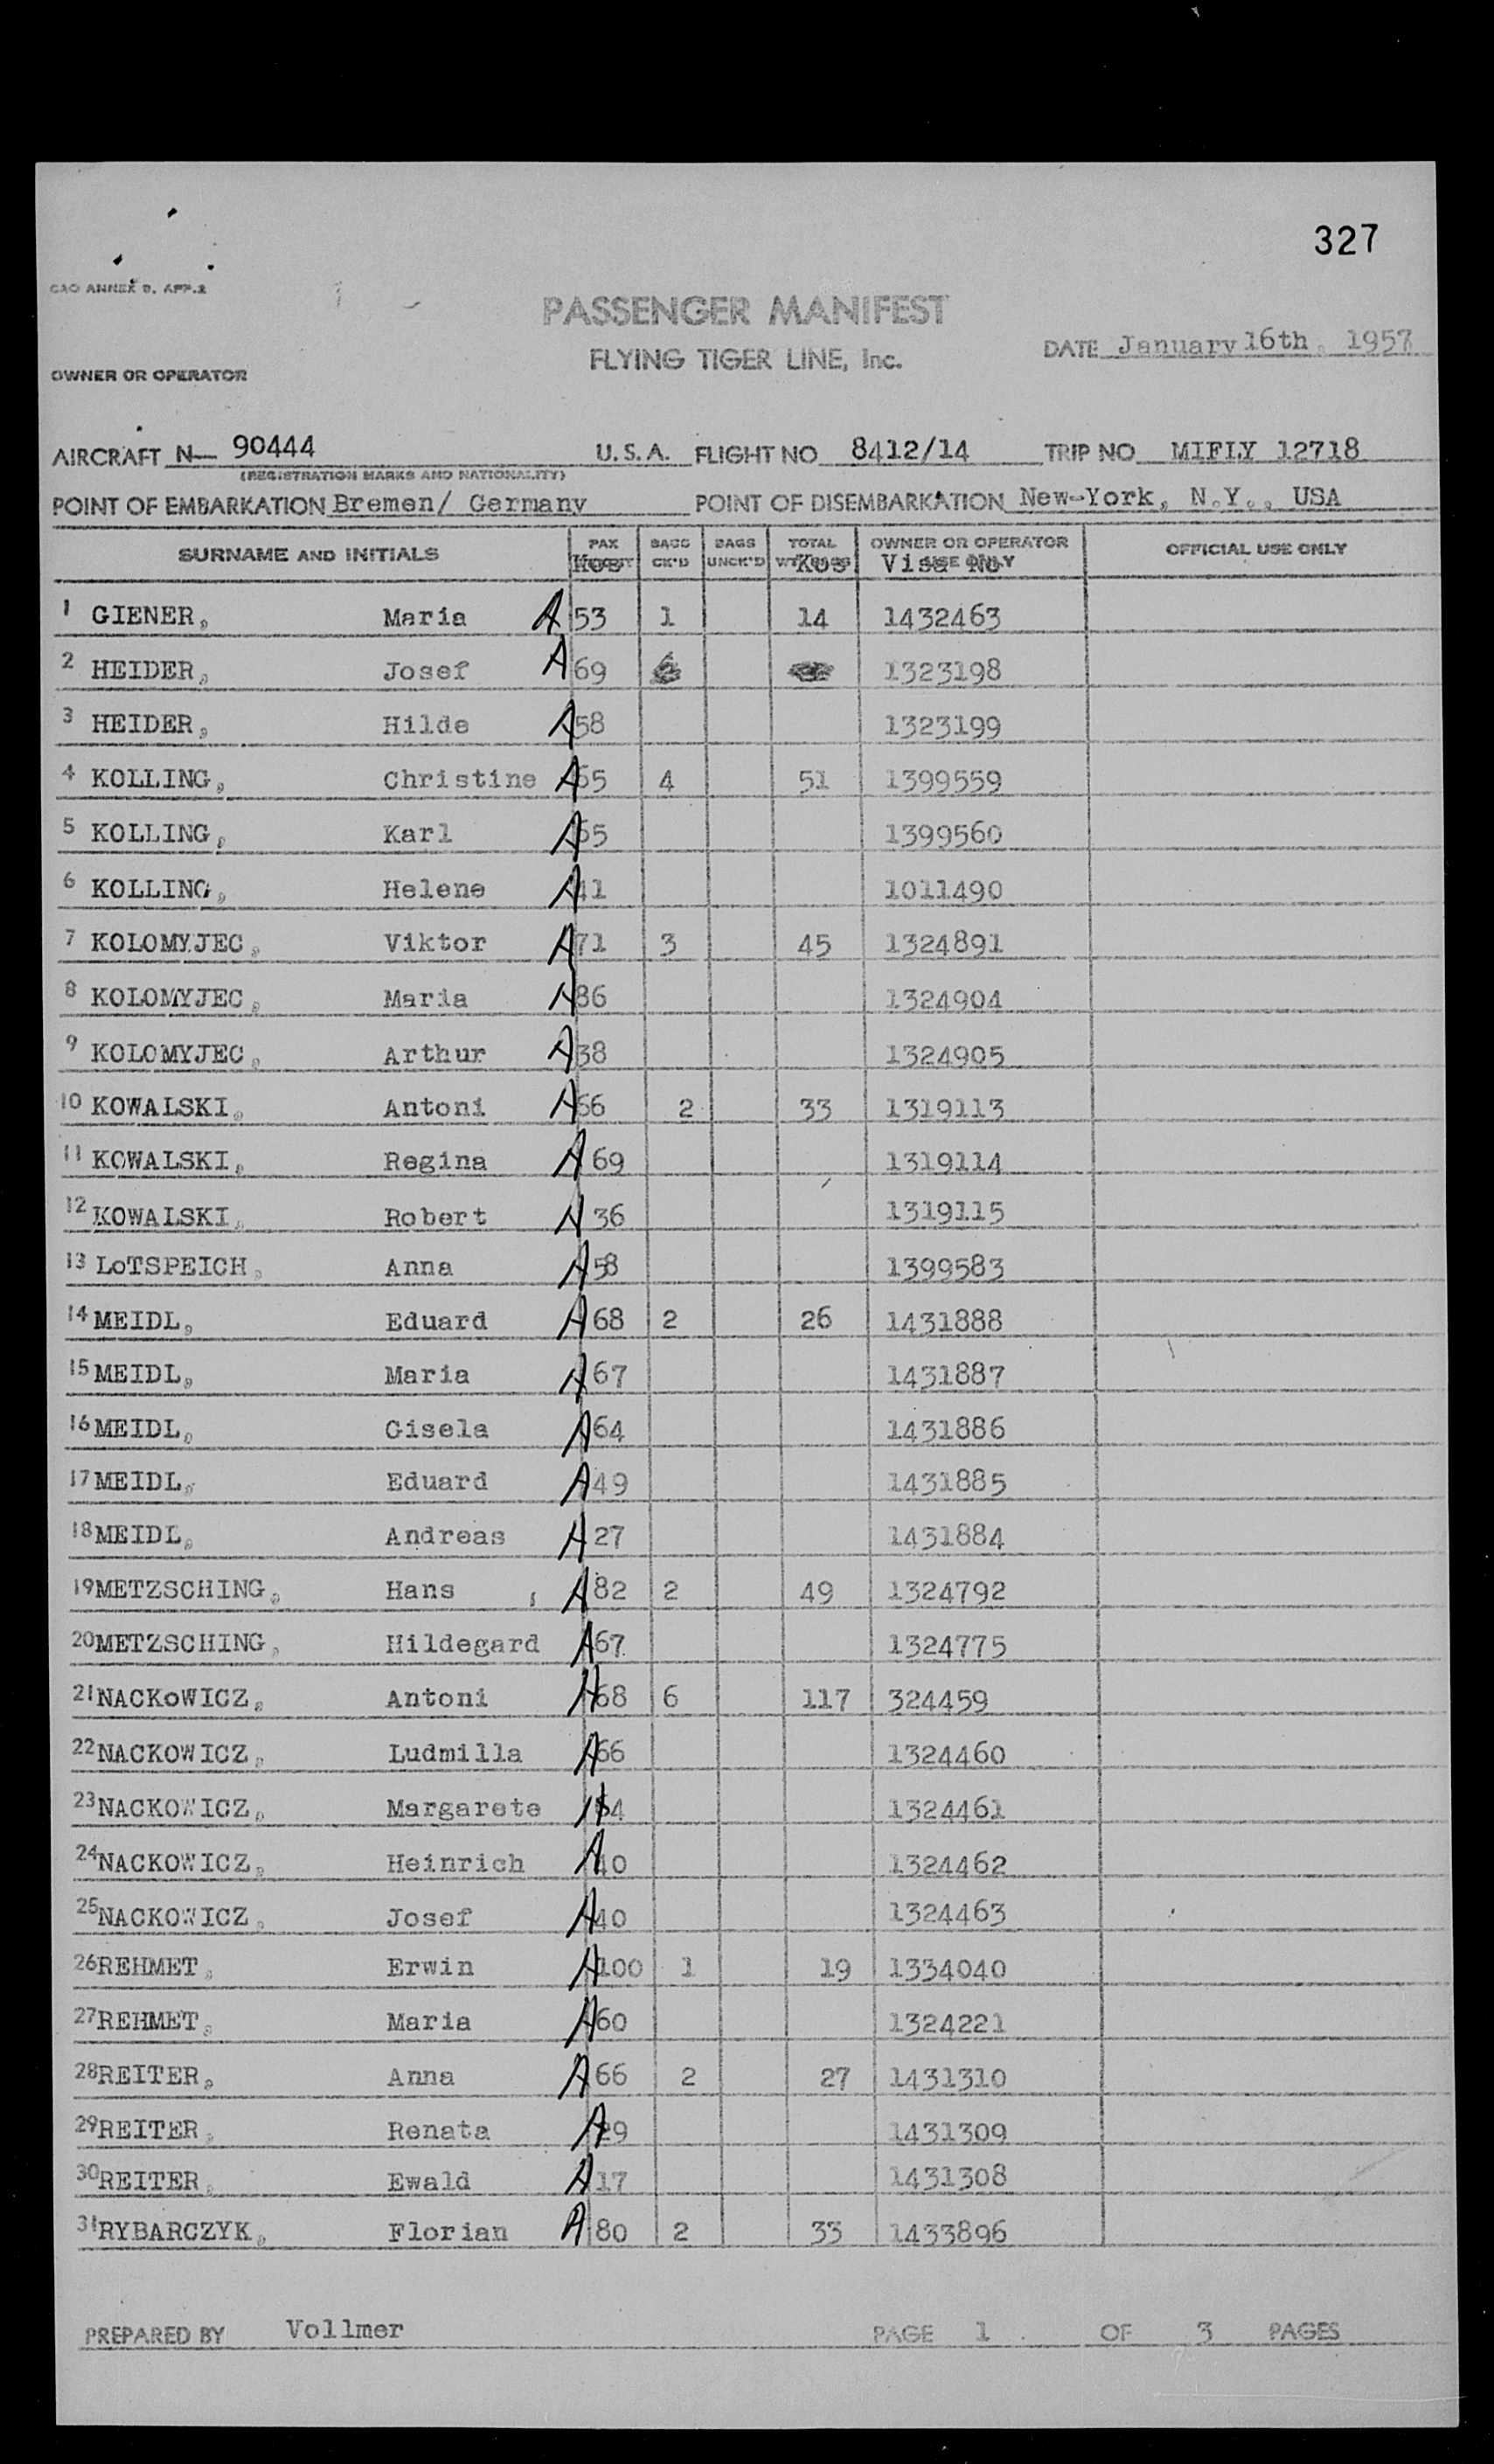 327
CAO ANNEX 9, APP.2
PASSENGER MANIFEST
FLYING TIGER LINE, Inc.
DATE January 16th, 1957
OWNER OR OPERATOR
AIRCRAFT N— 90444 U.S.A. FLIGHT NO 8412/14 TRIP NO MIFLY 12718
(REGISTRATION MARKS AND NATIONALITY)
POINT OF EMBARKATION Bremen/ Germany POINT OF DISEMBARKATION New-York, N.Y., USA
SURNAME AND INITIALS PAX KGS BAGG CK'D BAGS UNCK'D TOTAL KGS OWNER OR OPERATOR USE ONLY Visa No OFFICIAL USE ONLY
1 GIENER, Maria A 53 1 14 1432463
2 HEIDER, Josef A 69 1323198
3 HEIDER, Hilde A 58 1323199
4 KOLLING, Christine A 65 4 51 1399559
5 KOLLING, Karl A 65 1399560
6 KOLLING, Helene A 41 1011490
7 KOLOMYJEC, Viktor A 71 3 45 1324891
8 KOLOMYJEC, Maria A 86 1324904
9 KOLOMYJEC, Arthur A 38 1324905
10 KOWALSKI, Antoni A 66 2 33 1319113
11 KOWALSKI, Regina A 69 1319114
12 KOWALSKI, Robert A 36 1319115
13 LoTSPEICH, Anna A 58 1399583
14 MEIDL, Eduard A 68 2 26 1431888
15 MEIDL, Maria A 67 1431887
16 MEIDL, Gisela A 64 1431886
17 MEIDL, Eduard A 49 1431885
18 MEIDL, Andreas A 27 1431884
19 METZSCHING, Hans A 82 2 49 1324792
20 METZSCHING, Hildegard A 67 1324775
21 NACKoWICZ, Antoni A 68 6 117 324459
22 NACKOWICZ, Ludmilla A 66 1324460
23 NACKOWICZ, Margarete A 54 1324461
24 NACKOWICZ, Heinrich A 40 1324462
25 NACKOWICZ, Josef A 40 1324463
26 REHMET, Erwin A 100 1 19 1334040
27 REHMET, Maria A 60 1324221
28 REITER, Anna A 66 2 27 1431310
29 REITER, Renata A 29 1431309
30 REITER, Ewald A 17 1431308
31 RYBARCZYK, Florian A 80 2 33 1433896
PREPARED BY Vollmer PAGE 1 OF 3 PAGES